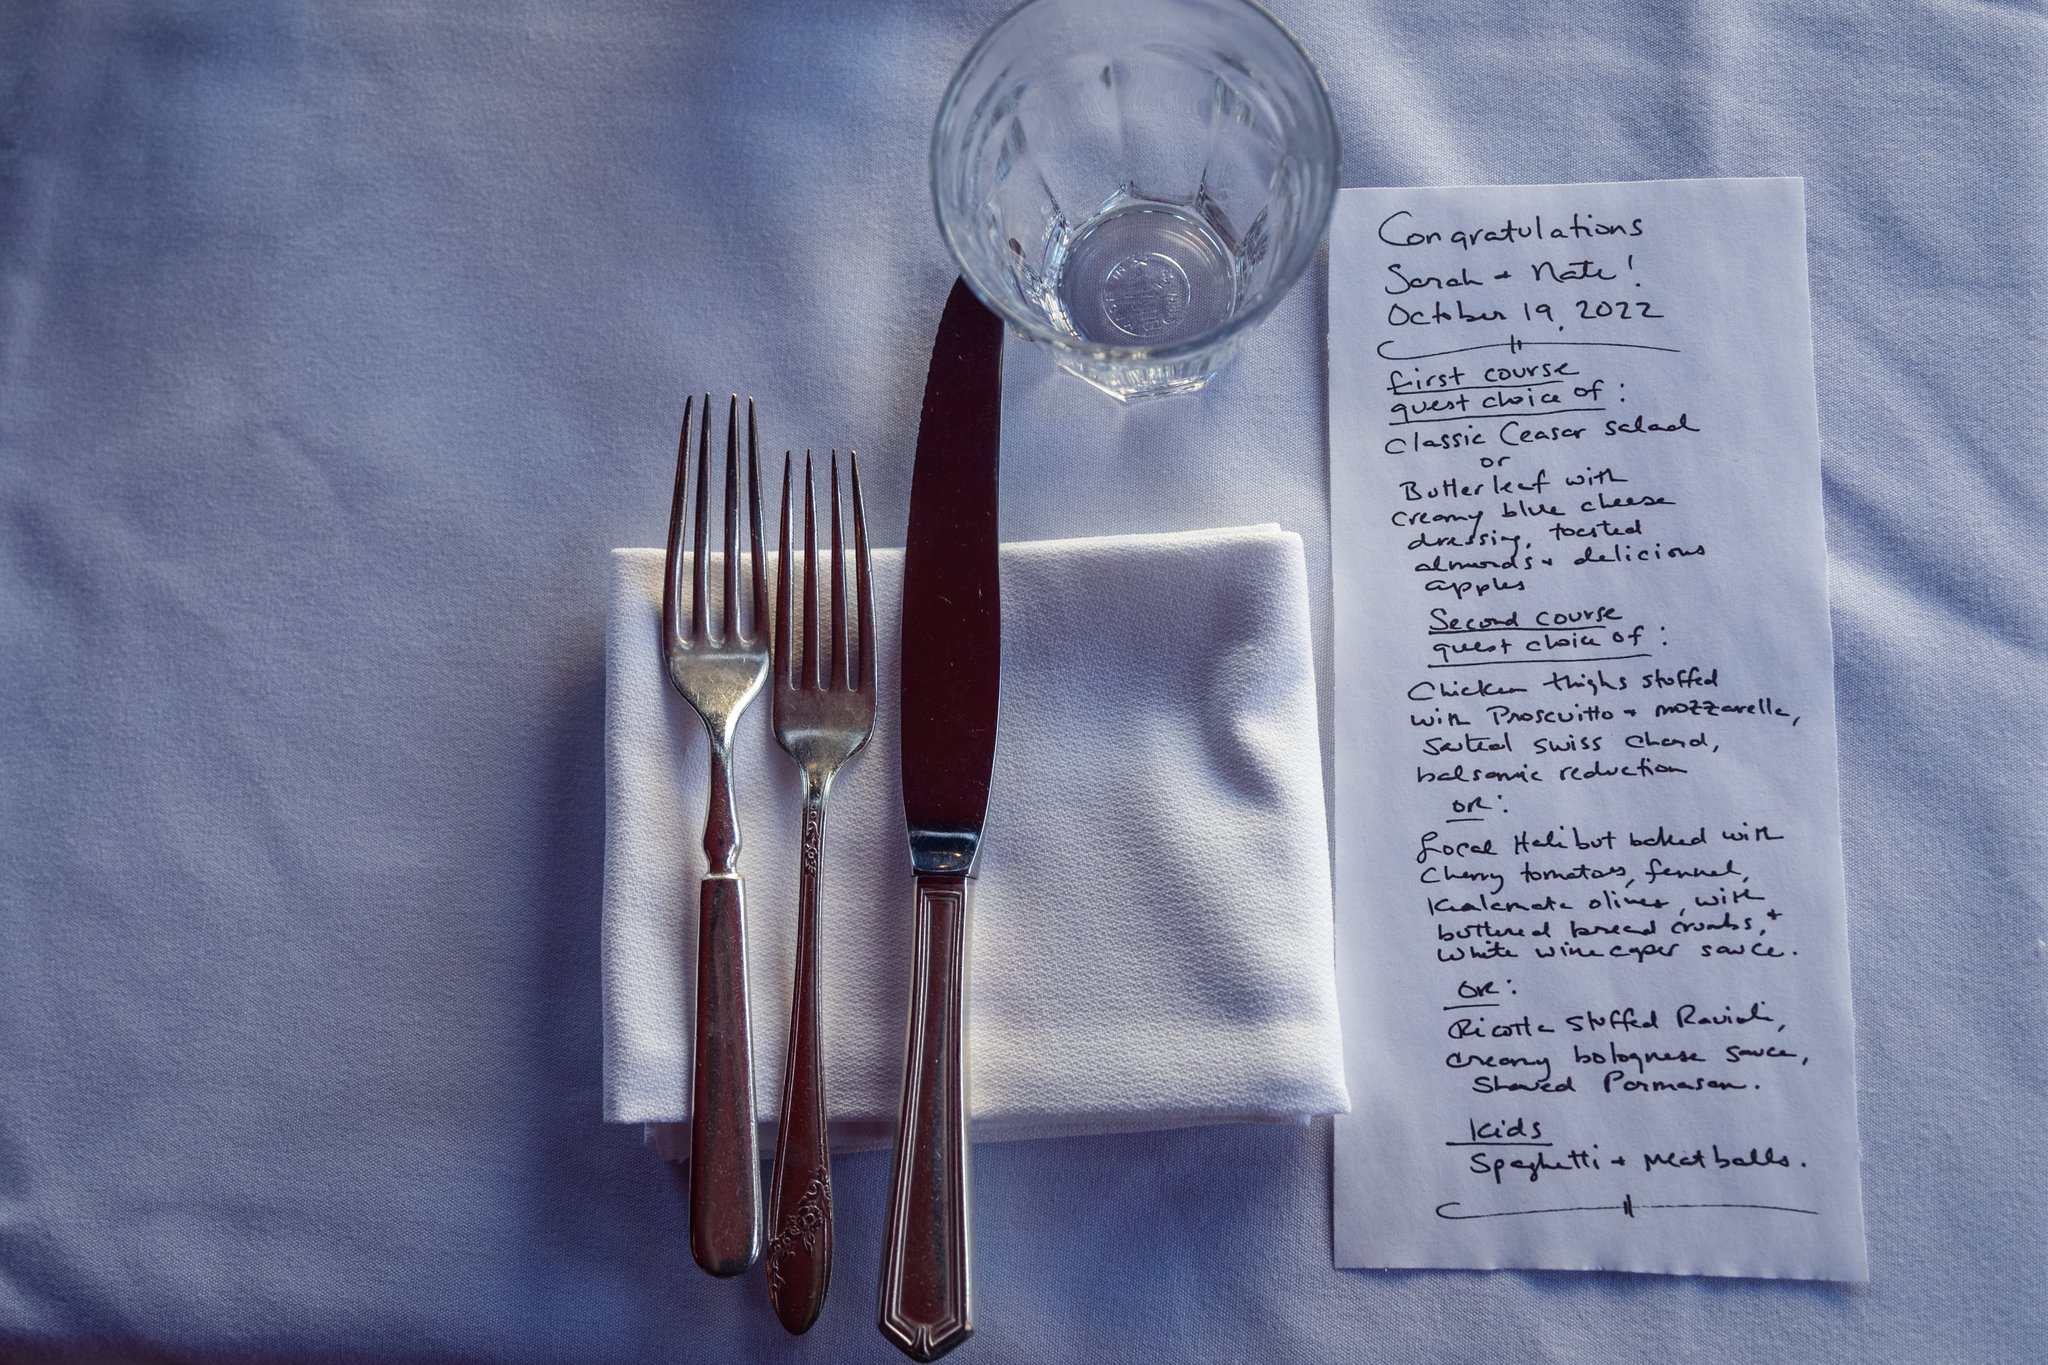 Congratulations
Sarah + Nate!
October 19, 2022
first course
guest choice of:
Classic Ceasar salad
or
Butter leaf with
creamy blue cheese
dressing, toasted
almonds + delicious
apples
Second course
guest choice of:
Chicken thighs stuffed
with Proscuitto + mozzarella,
sauteed swiss chard,
balsamic reduction
OR:
Local Halibut baked with
Cherry tomatoes, fennel,
Kalamata olives, with
buttered bread crumbs, +
white wine caper sauce.
OR:
Ricotta Stuffed Ravioli,
creamy bolognese sauce,
Shaved Parmasan.
Kids
Spaghetti + Meatballs.